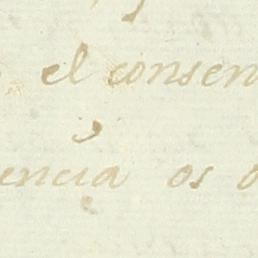 el consen
encia os